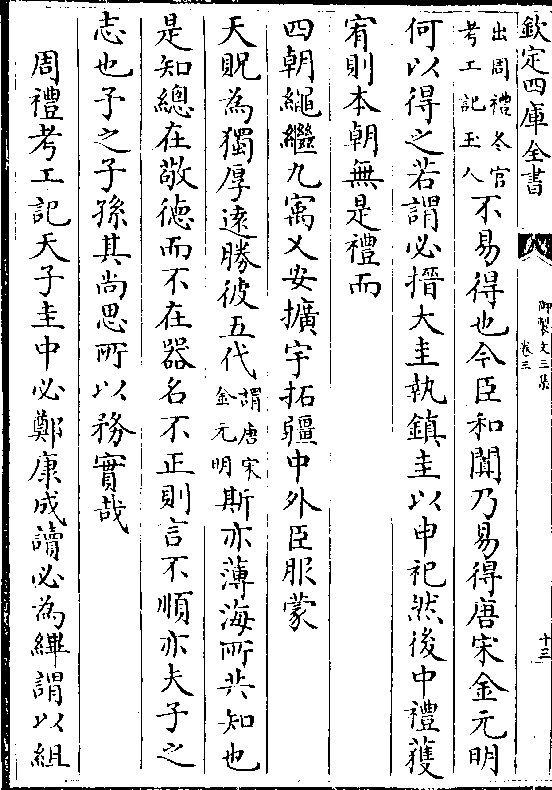 欽定四庫全書
御製文三集
卷三
十三
出周禮冬官
考工記玉人
不易得也今臣和闐乃易得唐宋金元明
何以得之若謂必搢大圭執鎮圭以申祀然後中禮蒦
宥則本朝無是禮而
四朝繩繼九㝢乂安擴宇拓疆中外臣服蒙
天貺為獨厚遠勝彼五代
謂唐宋
金元明
斯亦薄海所共知也
是知總在敬德而不在器名不正則言不順亦夫子之
志也予之子孫其尚思所以務實哉
周禮考工記天子圭中必鄭康成讀必為縪謂以組